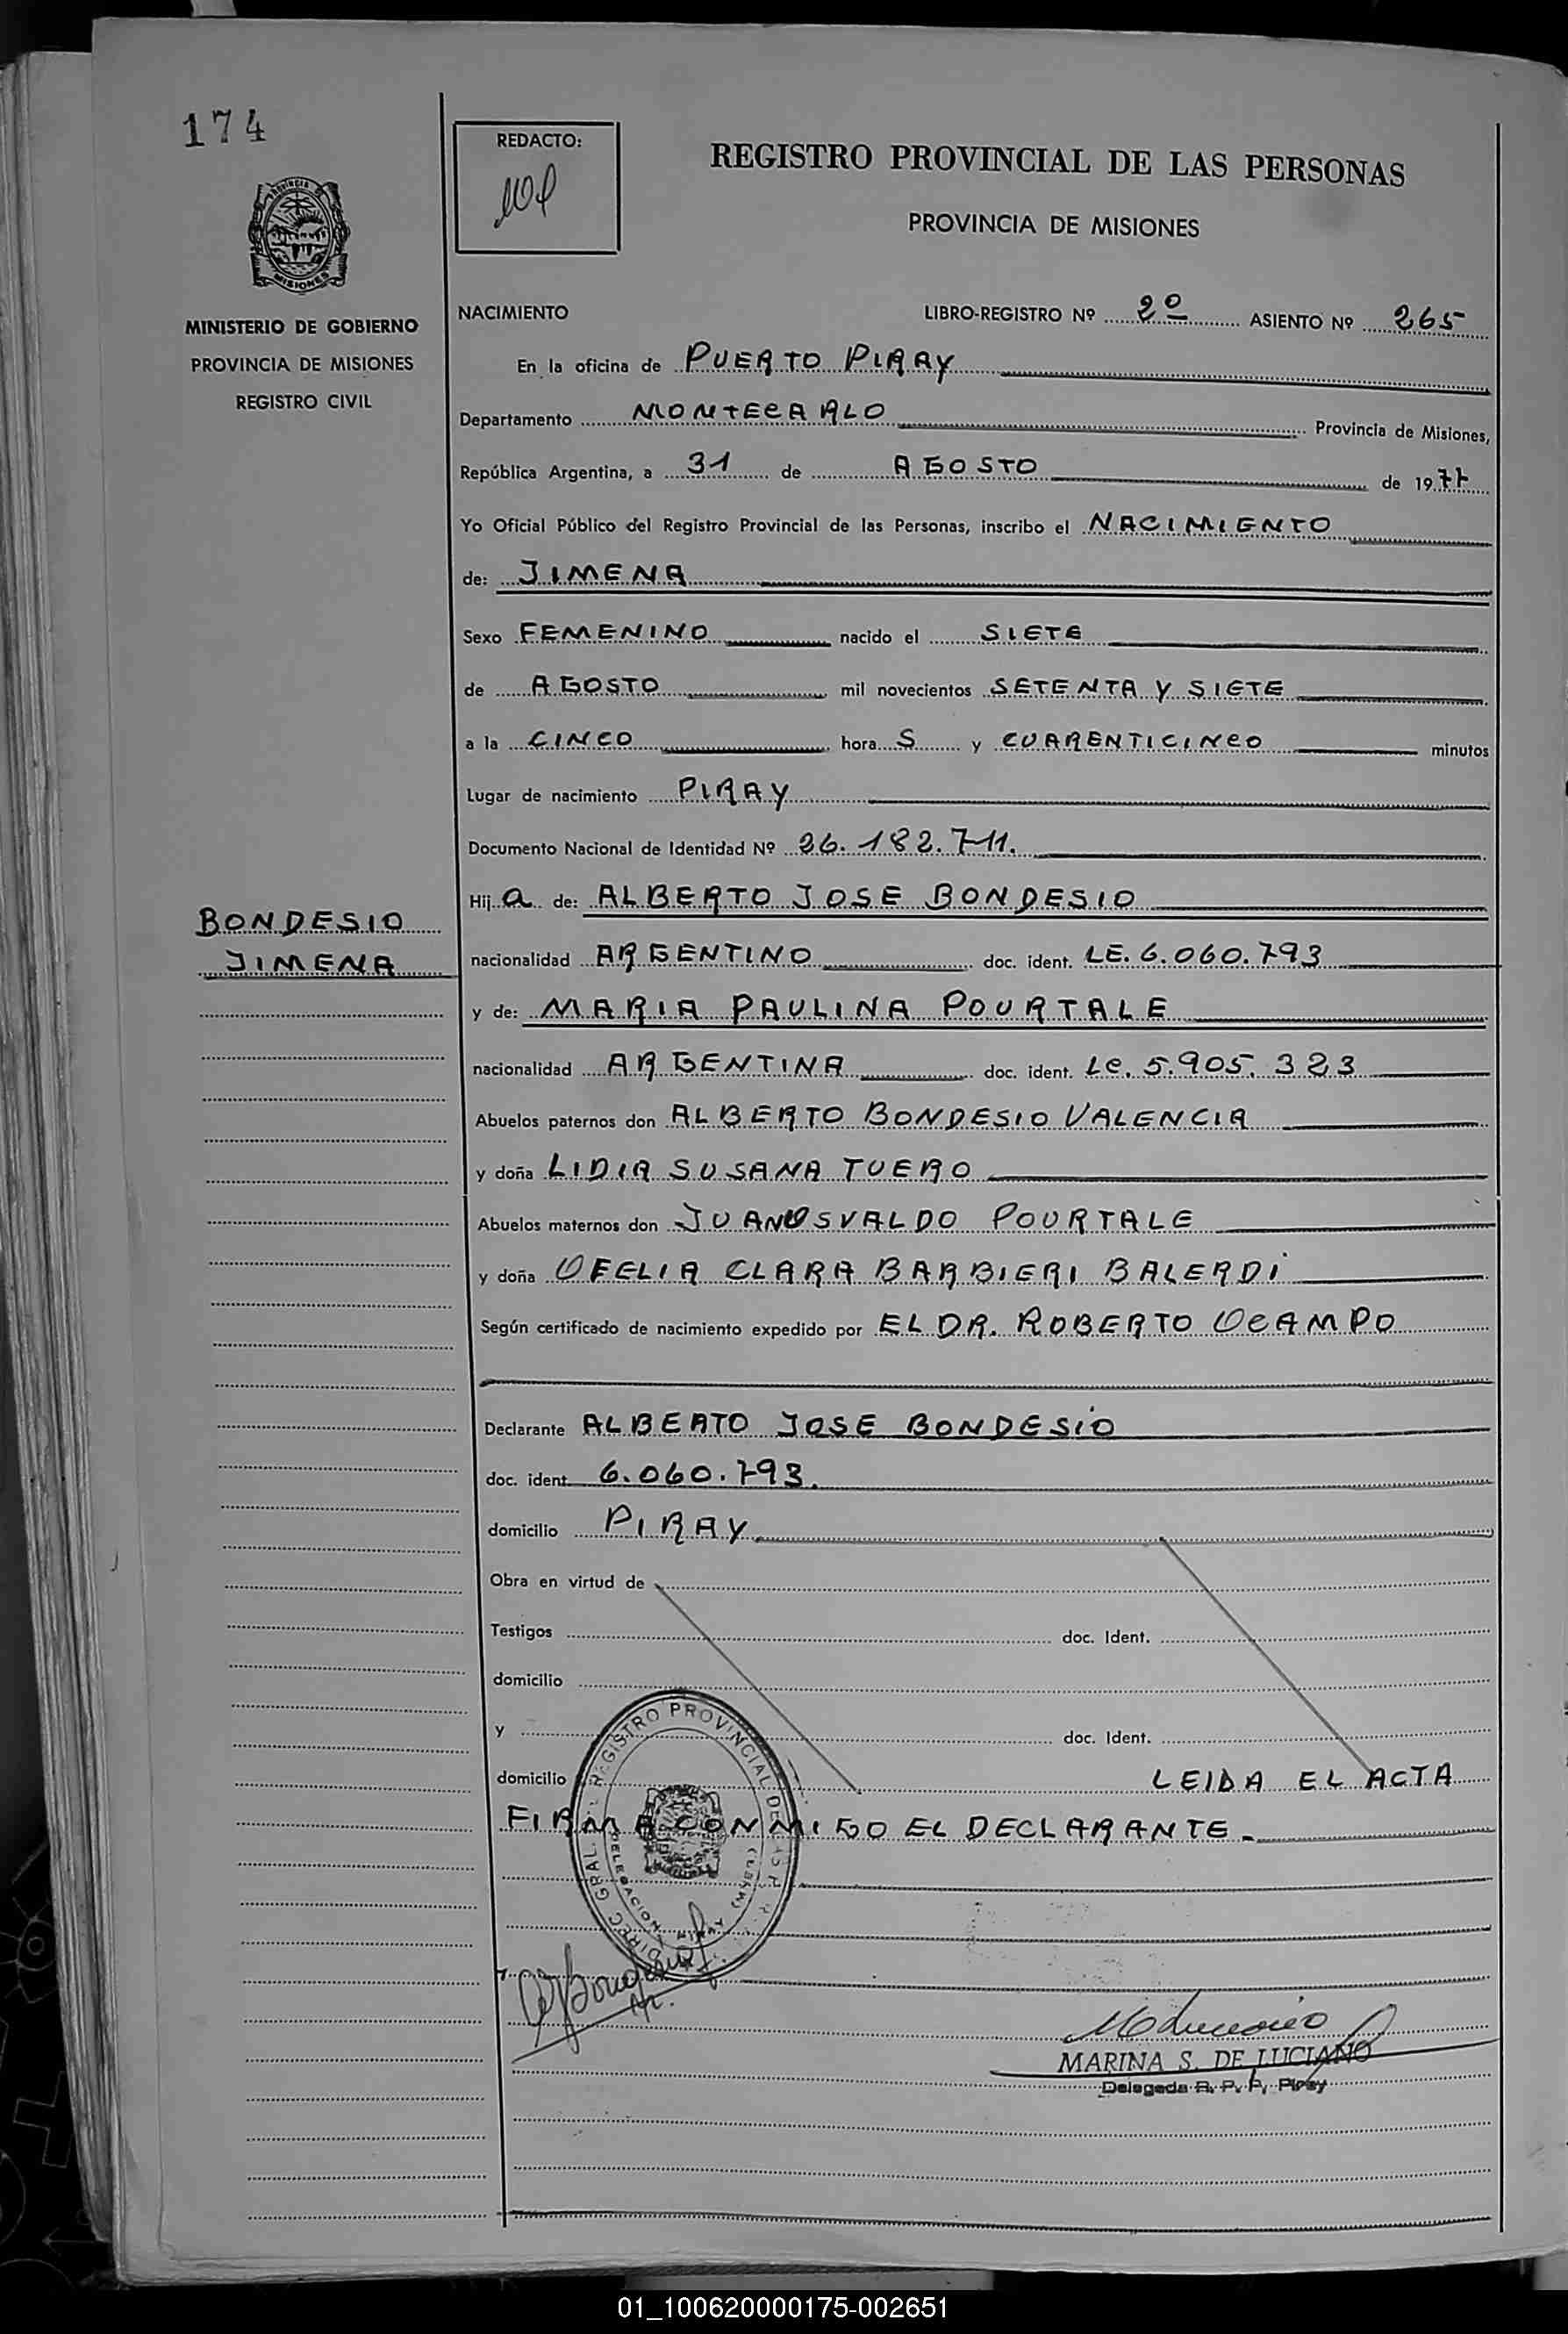 174
REDACTO:
REGISTRO PROVINCIAL DE LAS PERSONAS
PROVINCIA DE MISIONES
MISIONES
MINISTERIO DE GOBIERNO
PROVINCIA DE MISIONES
REGISTRO CIVIL
NACIMIENTO LIBRO-REGISTRO Nº 2º ASIENTO Nº 265
En la oficina de PUERTO PIRAY
Departamento MONTECARLO Provincia de Misiones,
República Argentina, a 31 de AGOSTO de 1977
Yo Oficial Público del Registro Provincial de las Personas, inscribo el NACIMIENTO
de: JIMENA
Sexo FEMENINO nacido el SIETE
de AGOSTO mil novecientos SETENTA Y SIETE
a la CINCO hora S y CUARENTICINCO minutos
Lugar de nacimiento PIRAY
Documento Nacional de Identidad Nº 26.182.711.
Hij a de: ALBERTO JOSE BONDESIO
BONDESIO
JIMENA
nacionalidad ARGENTINO doc. ident. LE. 6.060.793
y de: MARIA PAULINA POURTALE
nacionalidad ARGENTINA doc. ident. LC. 5.905.323
Abuelos paternos don ALBERTO BONDESIO VALENCIA
y doña LIDIA SUSANA TUERO
Abuelos maternos don JUAN OSVALDO POURTALE
y doña OFELIA CLARA BARBIERI BALERDI
Según certificado de nacimiento expedido por EL DR. ROBERTO OCAMPO
Declarante ALBERTO JOSE BONDESIO
doc. ident. 6.060.793.
domicilio PIRAY
Obra en virtud de
Testigos doc. Ident.
domicilio
y doc. Ident.
domicilio LEIDA EL ACTA
FIRMA CONMIGO EL DECLARANTE.
DIREC. GRAL. REGISTRO PROVINCIAL DE
DELEGACION PIRAY (MNES.)
MARINA S. DE LUCIANO
Delegada R. P. P. Piray
01_100620000175-002651